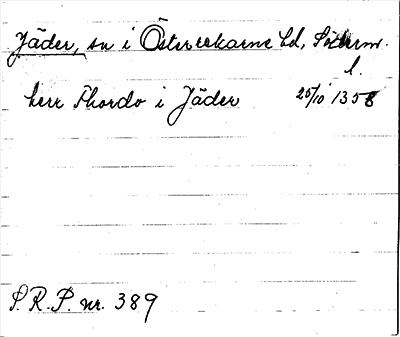 Jäder, sn i Österrekarne hd, Söderm.
l.
herr Thordo i Jäder 25/10 1358
S.R.P. nr. 389